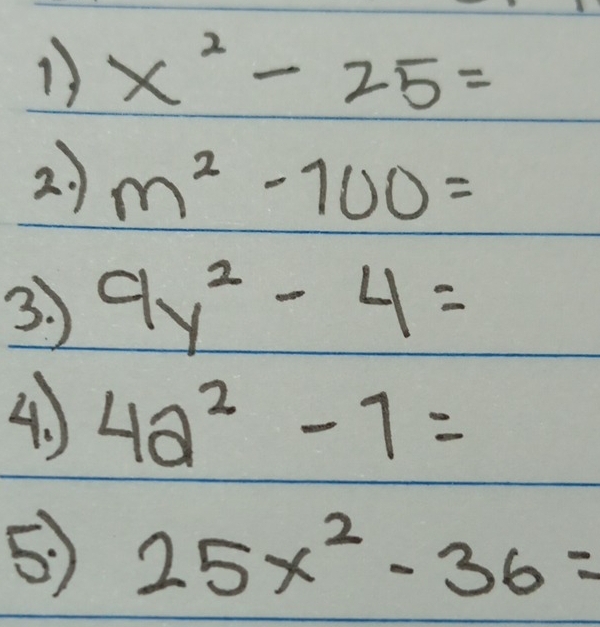 1.) x² - 25 =
2.) m² - 100 =
3.) 9y² - 4 =
4.) 4a² - 1 =
5.) 25x² - 36 =